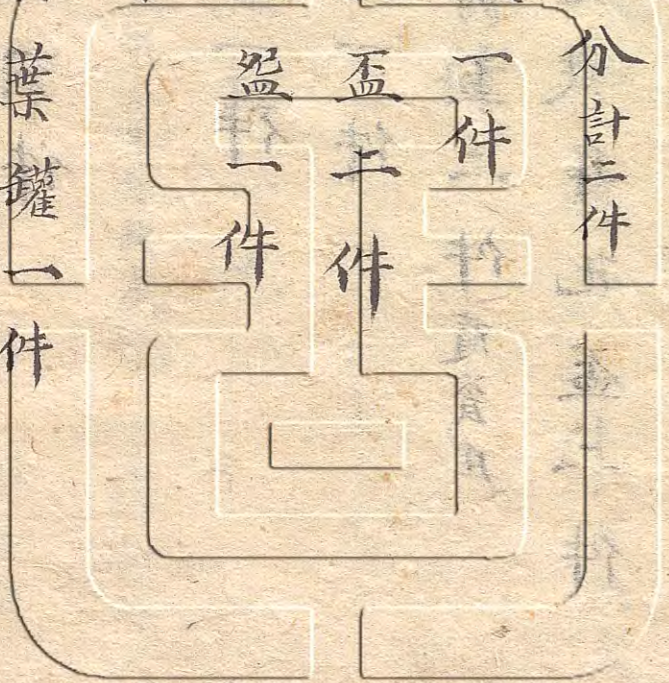 分計二件
一件
盃二件
盌一件
葉罐一件